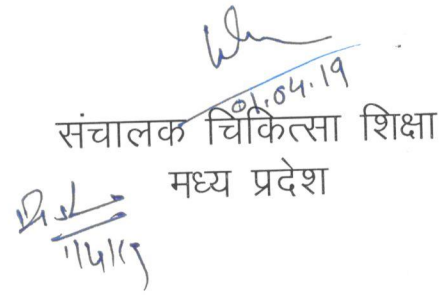 01.04.19
संचालक चिकित्सा शिक्षा
मध्य प्रदेश
1/4/19